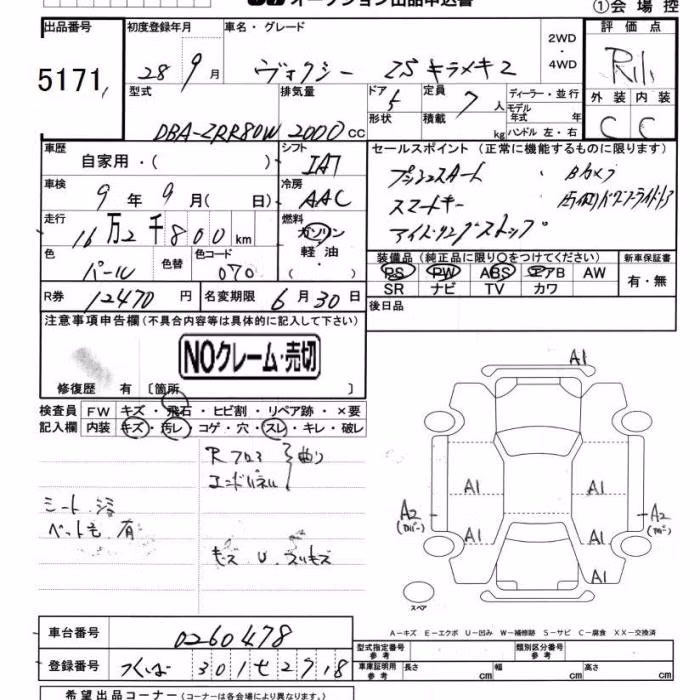 オークション出品申込書
①会場控
出品番号
5171
初度登録年月
28年9月
車名・グレード
ヴォクシー ZS キラメキ2
2WD
・
4WD
評価点
外装 内装
C C
型式
DBA-ZRR80W
排気量
2000cc
ドア 5
形状
定員 7人
積載 kg
ディーラー・並行
モデル年式 年
ハンドル 左・右
車歴
自家用・( )
シフト
IAT
車検
9年9月( 日)
冷房
AAC
走行
16万2千800km
燃料
ガソリン
軽油
( )
色
パール
色替
色コード
070
R券
12470円
名変期限
6月30日
セールスポイント(正常に機能するものに限ります)
プッシュスタート ・Bカメラ
スマートキー
アイドリングストップ
装備品(純正品に限り〇をつけてください)
PS PW ABS エアB AW
SR ナビ TV カワ
新車保証書
有・無
後日品
注意事項申告欄(不具合内容等は具体的に記入して下さい)
NOクレーム・売切
修復歴 有 〔箇所 〕
検査員記入欄
FW キズ・飛石・ヒビ割・リペア跡・×要
内装 キズ・汚レ・コゲ・穴・スレ・キレ・破レ
Rフロア 曲り
エンドパネル
シート
ペット毛 有
キズ U スリキズ
A1
A1 A1
A2 A2
A1 A1
A1
スペア
A-キズ E-エクボ U-凹み W-補修跡 S-サビ C-腐食 XX-交換済
車台番号
0260478
登録番号
つくば 301 せ 2718
型式指定番号
参考
類別区分番号
参考
車庫証明用
参考
長さ cm 幅 cm 高さ cm
希望出品コーナー(コーナーは各会場により異なります)